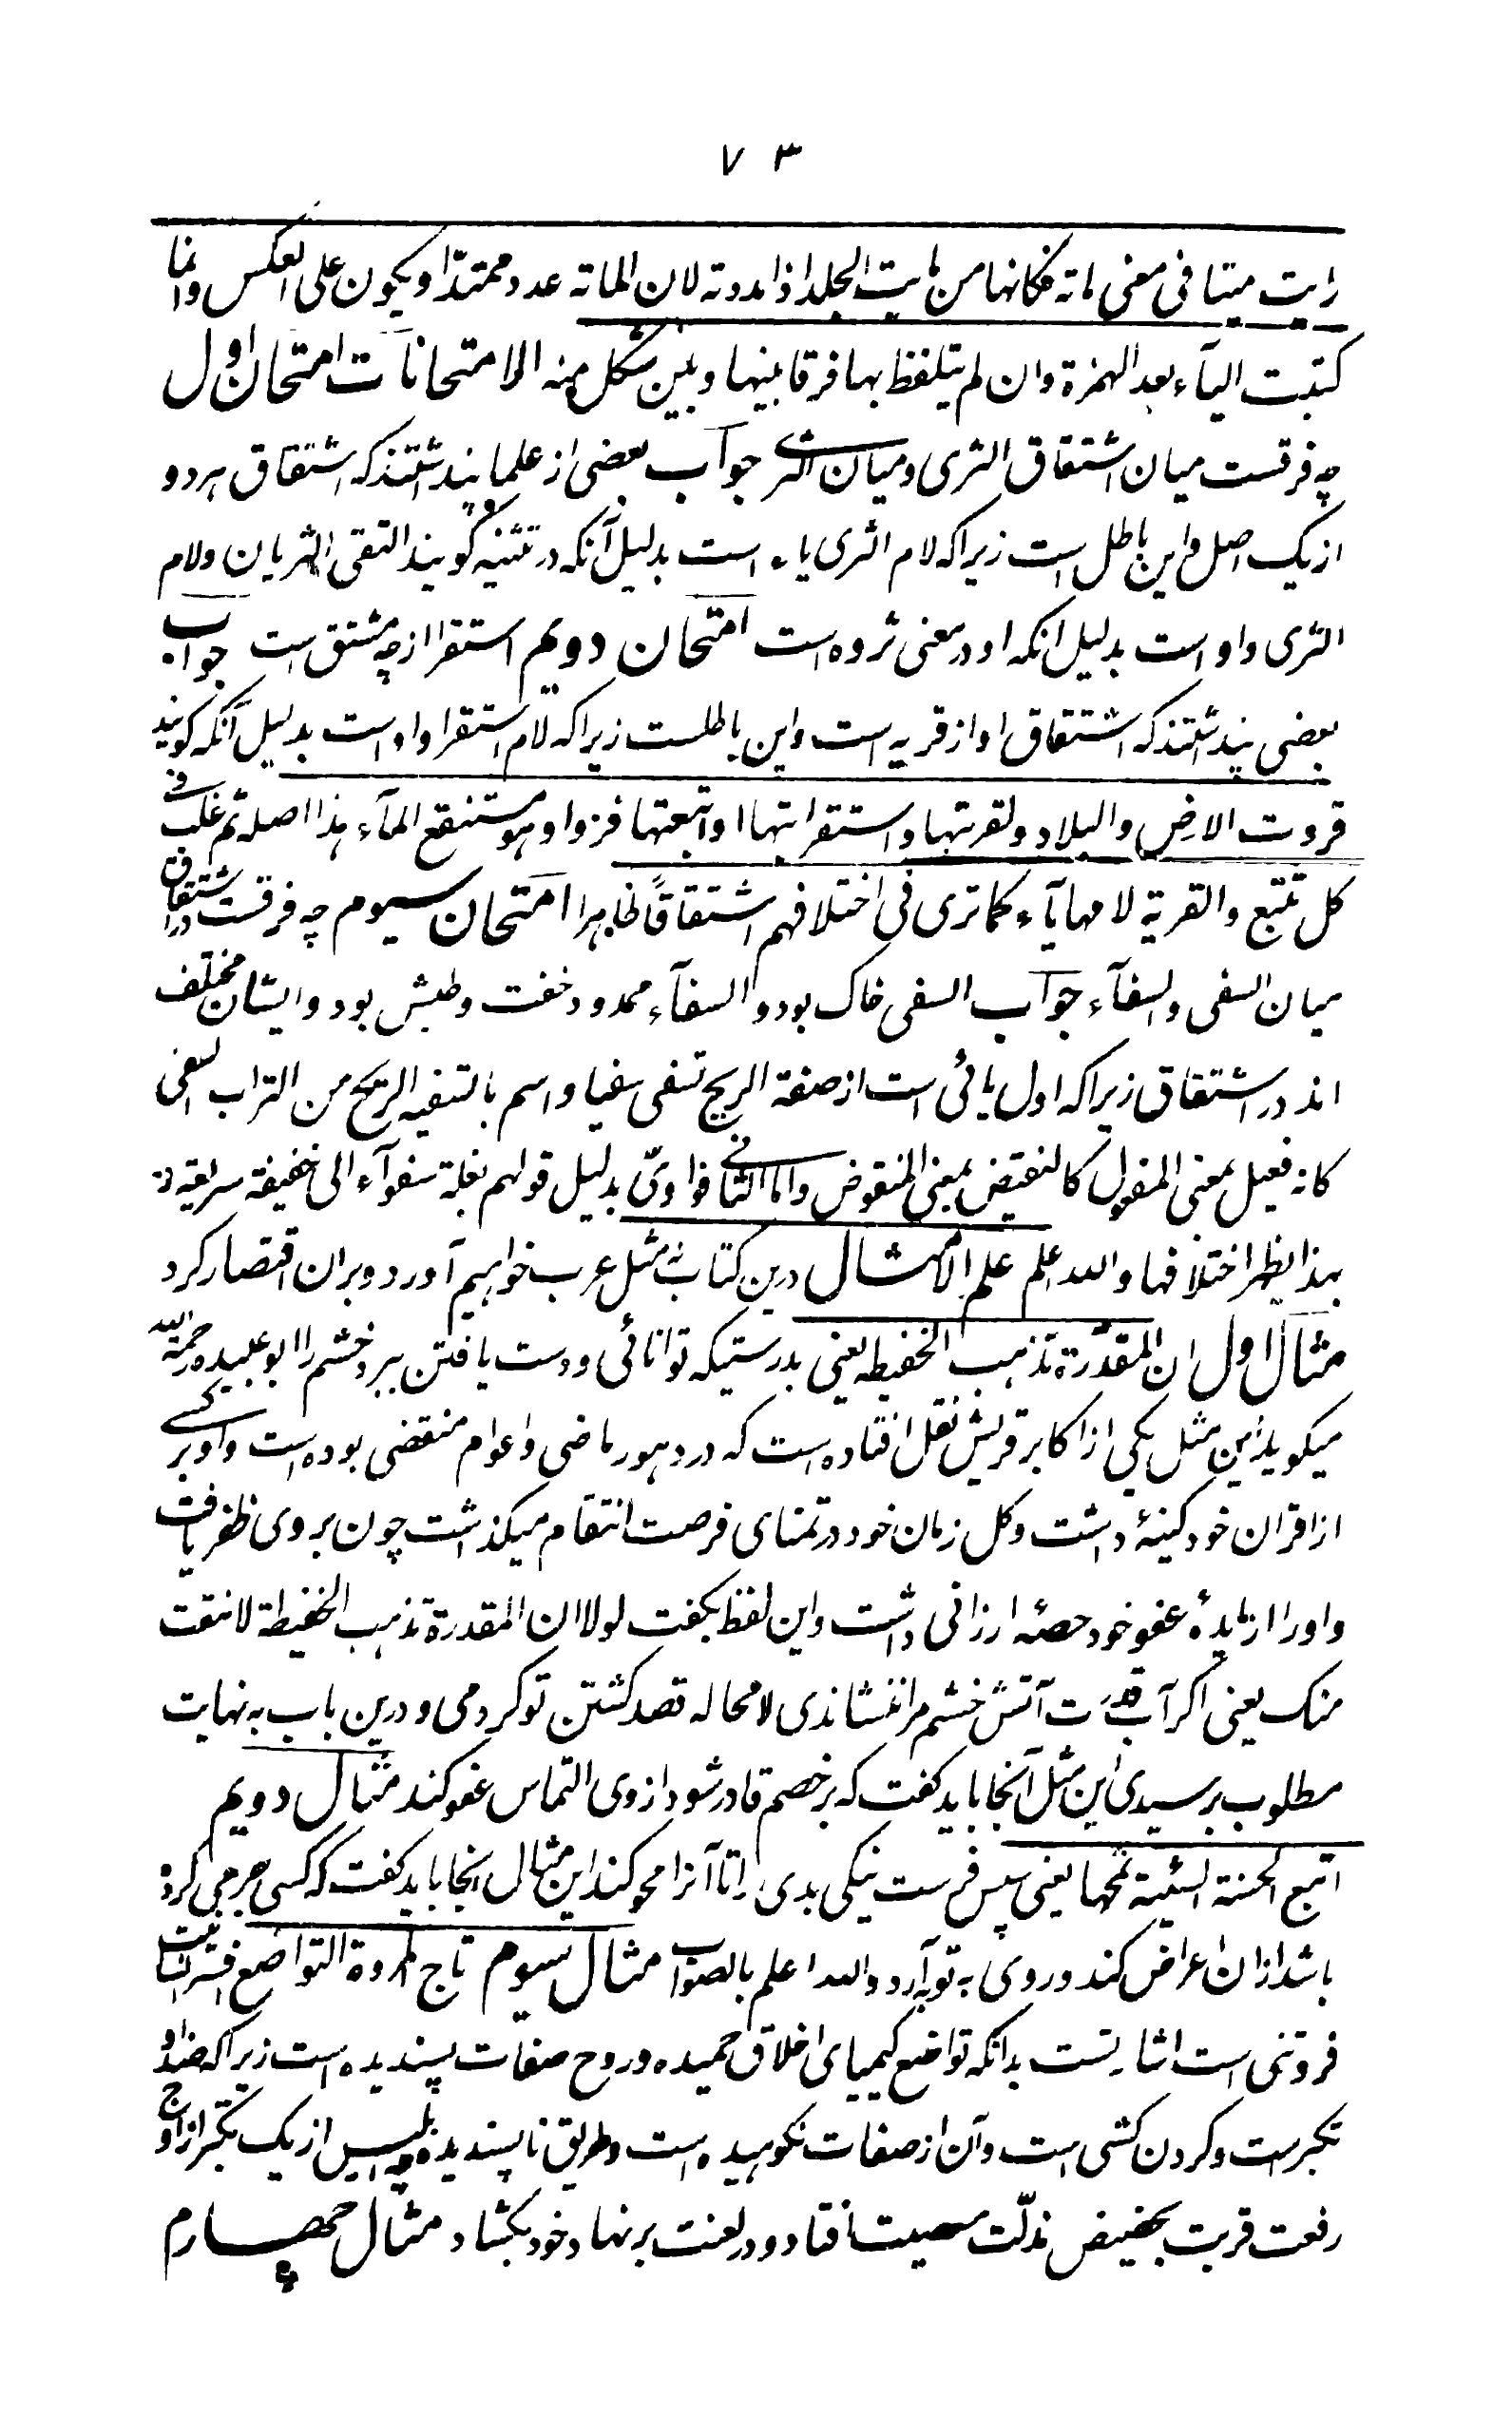 ٧٣
رایت میتا فی معنی ماته فکانها من مایت الجلد اذا مددته لان الماته عدد ممتدّ او یکون علی العکس وانما
کتبت الیآء بعد الهمزة وان لم یتلفظ بها فرقا بینها وبین شکل منه الامتحانات امتحان اول
چه فرقست میان اشتقاق الثری ومیان الثری جواب بعضی از علما پنداشتند که اشتقاق هردو
از یک اصل واین باطل است زیرا که لام الثری یاء است بدلیل آنکه در تثنیه گویند التقی الثریان ولام
الثری واو است بدلیل انکه او در معنی ثروه است امتحان دویم استقرا از چه مشتق است جواب
بعضی پنداشتند که اشتقاق او از قریه است واین باطلست زیرا که لام استقرا واو است بدلیل آنکه کویند
قروت الارض والبلاد وتقریتها واستقرایتها اواتبعتها فزوا وهو مستنقع المآء هذا اصله ثم غلب فی
کل تتبع والقریة لامها یآء کما تری فی اختلافهم اشتقاقاً ظاهرا امتحان سیوم چه فرقست در اشتقاق
میان السفی والسفآء جواب السفی خاک بود والسفآء ممدود خفت وطیش بود وایشان مختلف
اند در اشتقاق زیرا که اول یائی است از صفة الریح تسفی سفیا واسم بالتسفیه الریح من التراب السفی
کانه فعیل بمعنی المفعول کالنقیض بمعنی المنقوض واما الثانی فواویّ بدلیل قولهم بغلة سفوآء الی خفیفة سریعة و
بهذا یظهر اختلافها والله اعلم علم الامثال درین کتاب نه مثل عرب خواهیم آورد وبران اقتصار کرد
مثال اول ان المقدرة تذهب الحفیظه یعنی بدرستیکه توانائی ودست یافتن ببرد خشم را ابو عبیده رحمة الله
میکوید این مثل یکی از اکابر قریش نقل افتاده است که در دهور ماضی واعوام منقضی بوده است واو بر کسی
از اقران خود کینهٔ داشت وکل زمان خود در تمنای فرصت انتقام میکذاشت چون بر وی ظفر یافت
واو را از مایدهٔ عفو خود حصهٔ ارزانی داشت واین لفظ بکفت لولا ان المقدرة تذهب الحفیظة لانتقمت
منک یعنی اکر آب قدرت آتش خشم مرا ننشاندی لامحاله قصد کشتن تو کردمی ودرین باب به نهایت
مطلوب برسیدی این مثل آنجا باید کفت که بر خصم قادر شود از وی التماس عفو کند مثال دویم
اتبع الحسنة السیئة تمحها یعنی سپس فرست نیکی بدی را تا آنرا محو کند این مثال انجا باید کفت که کسی جرمی کرده
باشد ازان اعراض کند وروی به توبه آرد والله اعلم بالصواب مثال سیوم تاج المروة التواضع
فروتنی است اشارتست بدانکه تواضع کیمیای اخلاق حمیده وروح صفات پسندیده است زیرا که ضد او
تکبر است وکردن کشی است وآن از صفات نکوهیده است وطریق ناپسندیده چه ابلیس از یک تکبر از اوج
رفعت قربت بحضیض مذلّت معصیت افتاد ودر لعنت بر نهاد خود بکشاد مثال چهارم